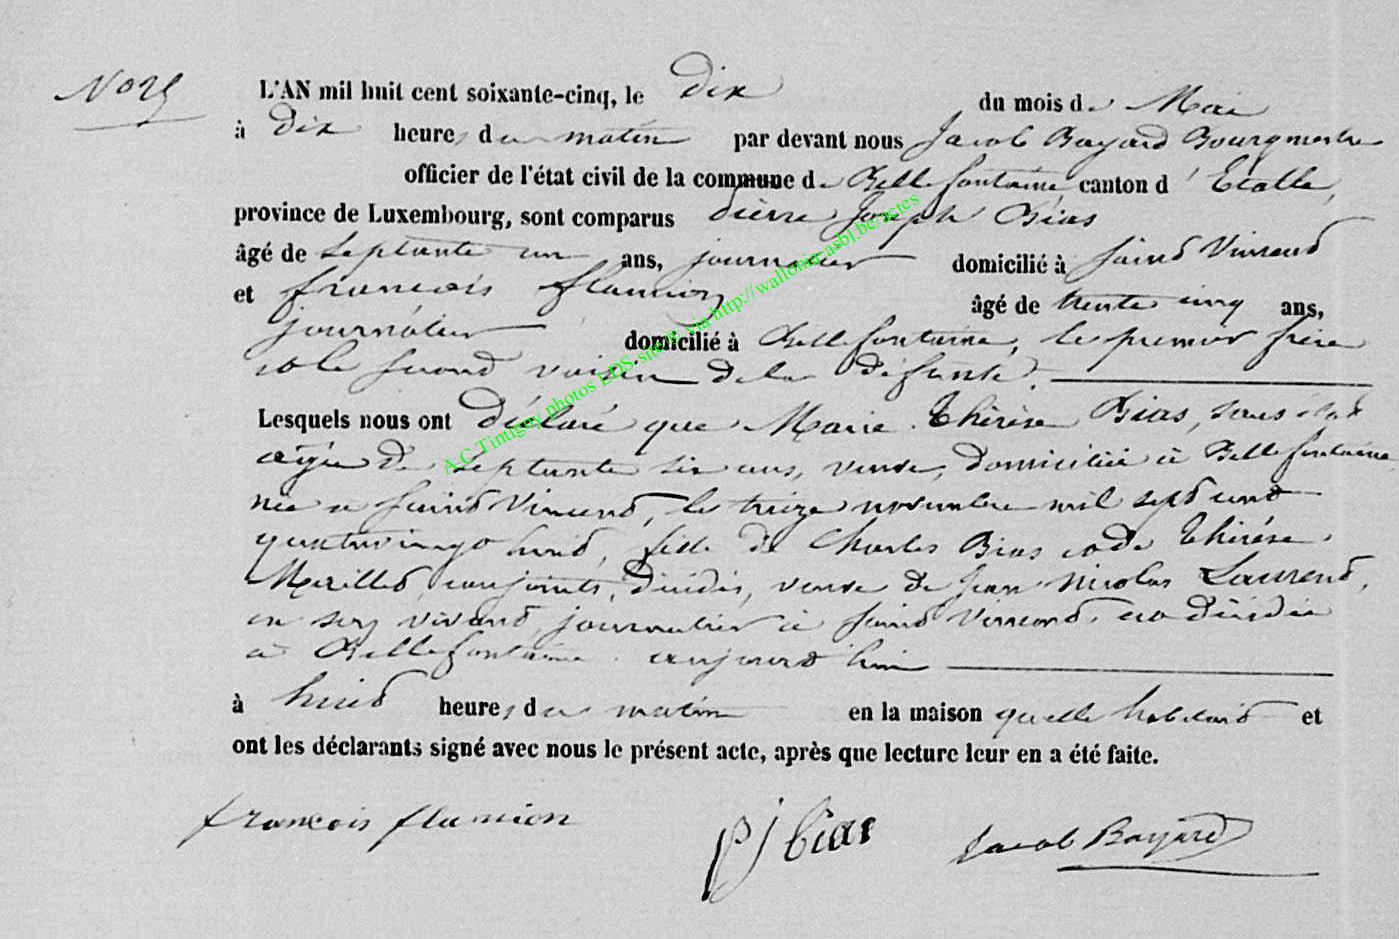 No 25
L'AN mil huit cent soixante-cinq, le dix du mois de Mai
à dix heures du matin par devant nous Jacob Bayard Bourgmestre
officier de l'état civil de la commune de Bellefontaine canton d'Etalle,
province de Luxembourg, sont comparus Pierre Joseph Bias
âgé de septante un ans, journalier domicilié à Saind Vincend
et françois flamion âgé de trente cinq ans,
journalier domicilié à Bellefontaine, le premier frère
et le second voisin de la défunte.
Lesquels nous ont déclaré que Marie Thérèse Bias, sans état
agée de septante six ans, veuve, domiciliée à Bellefontaine
née a Saind Vincend, le treize novembre mil sept cend
quatrevingt huid, fille de Charles Bias et de Thérèse
conjoints, décédés, veuve de Jean Nicolas Laurend,
en son vivand journalier à Saind Vincend, est décédée
à Bellefontaine aujourd'hui
à huid heures du matin en la maison quelle habitaid et
ont les déclarants signé avec nous le présent acte, après que lecture leur en a été faite.
françois flamion PJ bias Jacob Bayard
A.C.Tintigny photos LDS sur via http://wallonia-asbl.be/actes